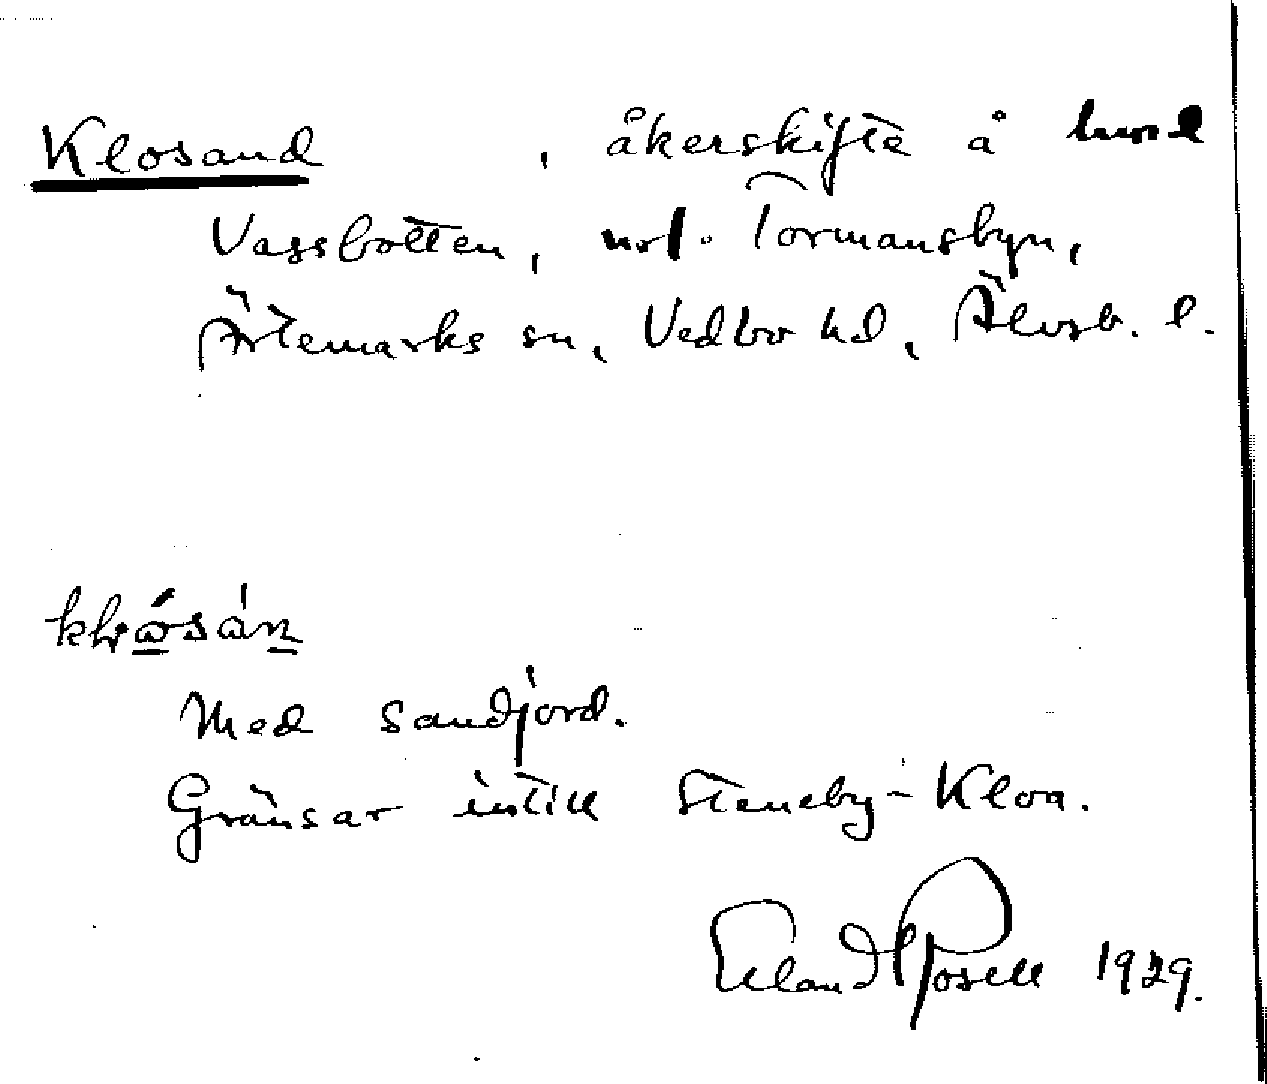 Klosand , åkerskifte å hmd
Vassbotten, urf. Tormansbyn,
Ärtemarks sn, Vedbo hd, Älvsb. l.
Med sandjord.
Gränsar intill Steneby-Kloa.
Erland Rosell 1929.